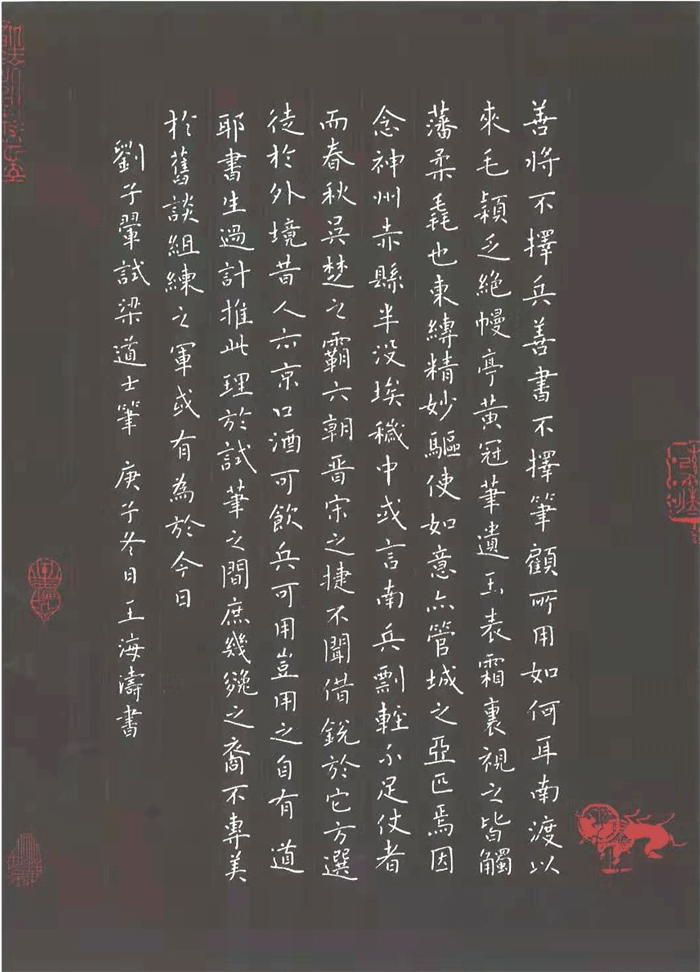 善將不擇兵善書不擇筆顧所用如何耳南渡以
來毛穎乏絕幔亭黃冠筆遺玉表霜裏視之皆觸
藩柔毳也東縛精妙驅使如意亦管城之亞匹焉因
念神州赤縣半没埃穢中或言南兵剽輕不足仗者
而春秋吳楚之霸六朝晉宋之捷不聞借銳於它方選
徒於外境昔人亦京口酒可飲兵可用豈用之自有道
耶書生過計推此理於試筆之間庶幾㕙之裔不專美
於舊談組練之軍或有為於今日
劉子翬試梁道士筆 庚子冬日王海濤書